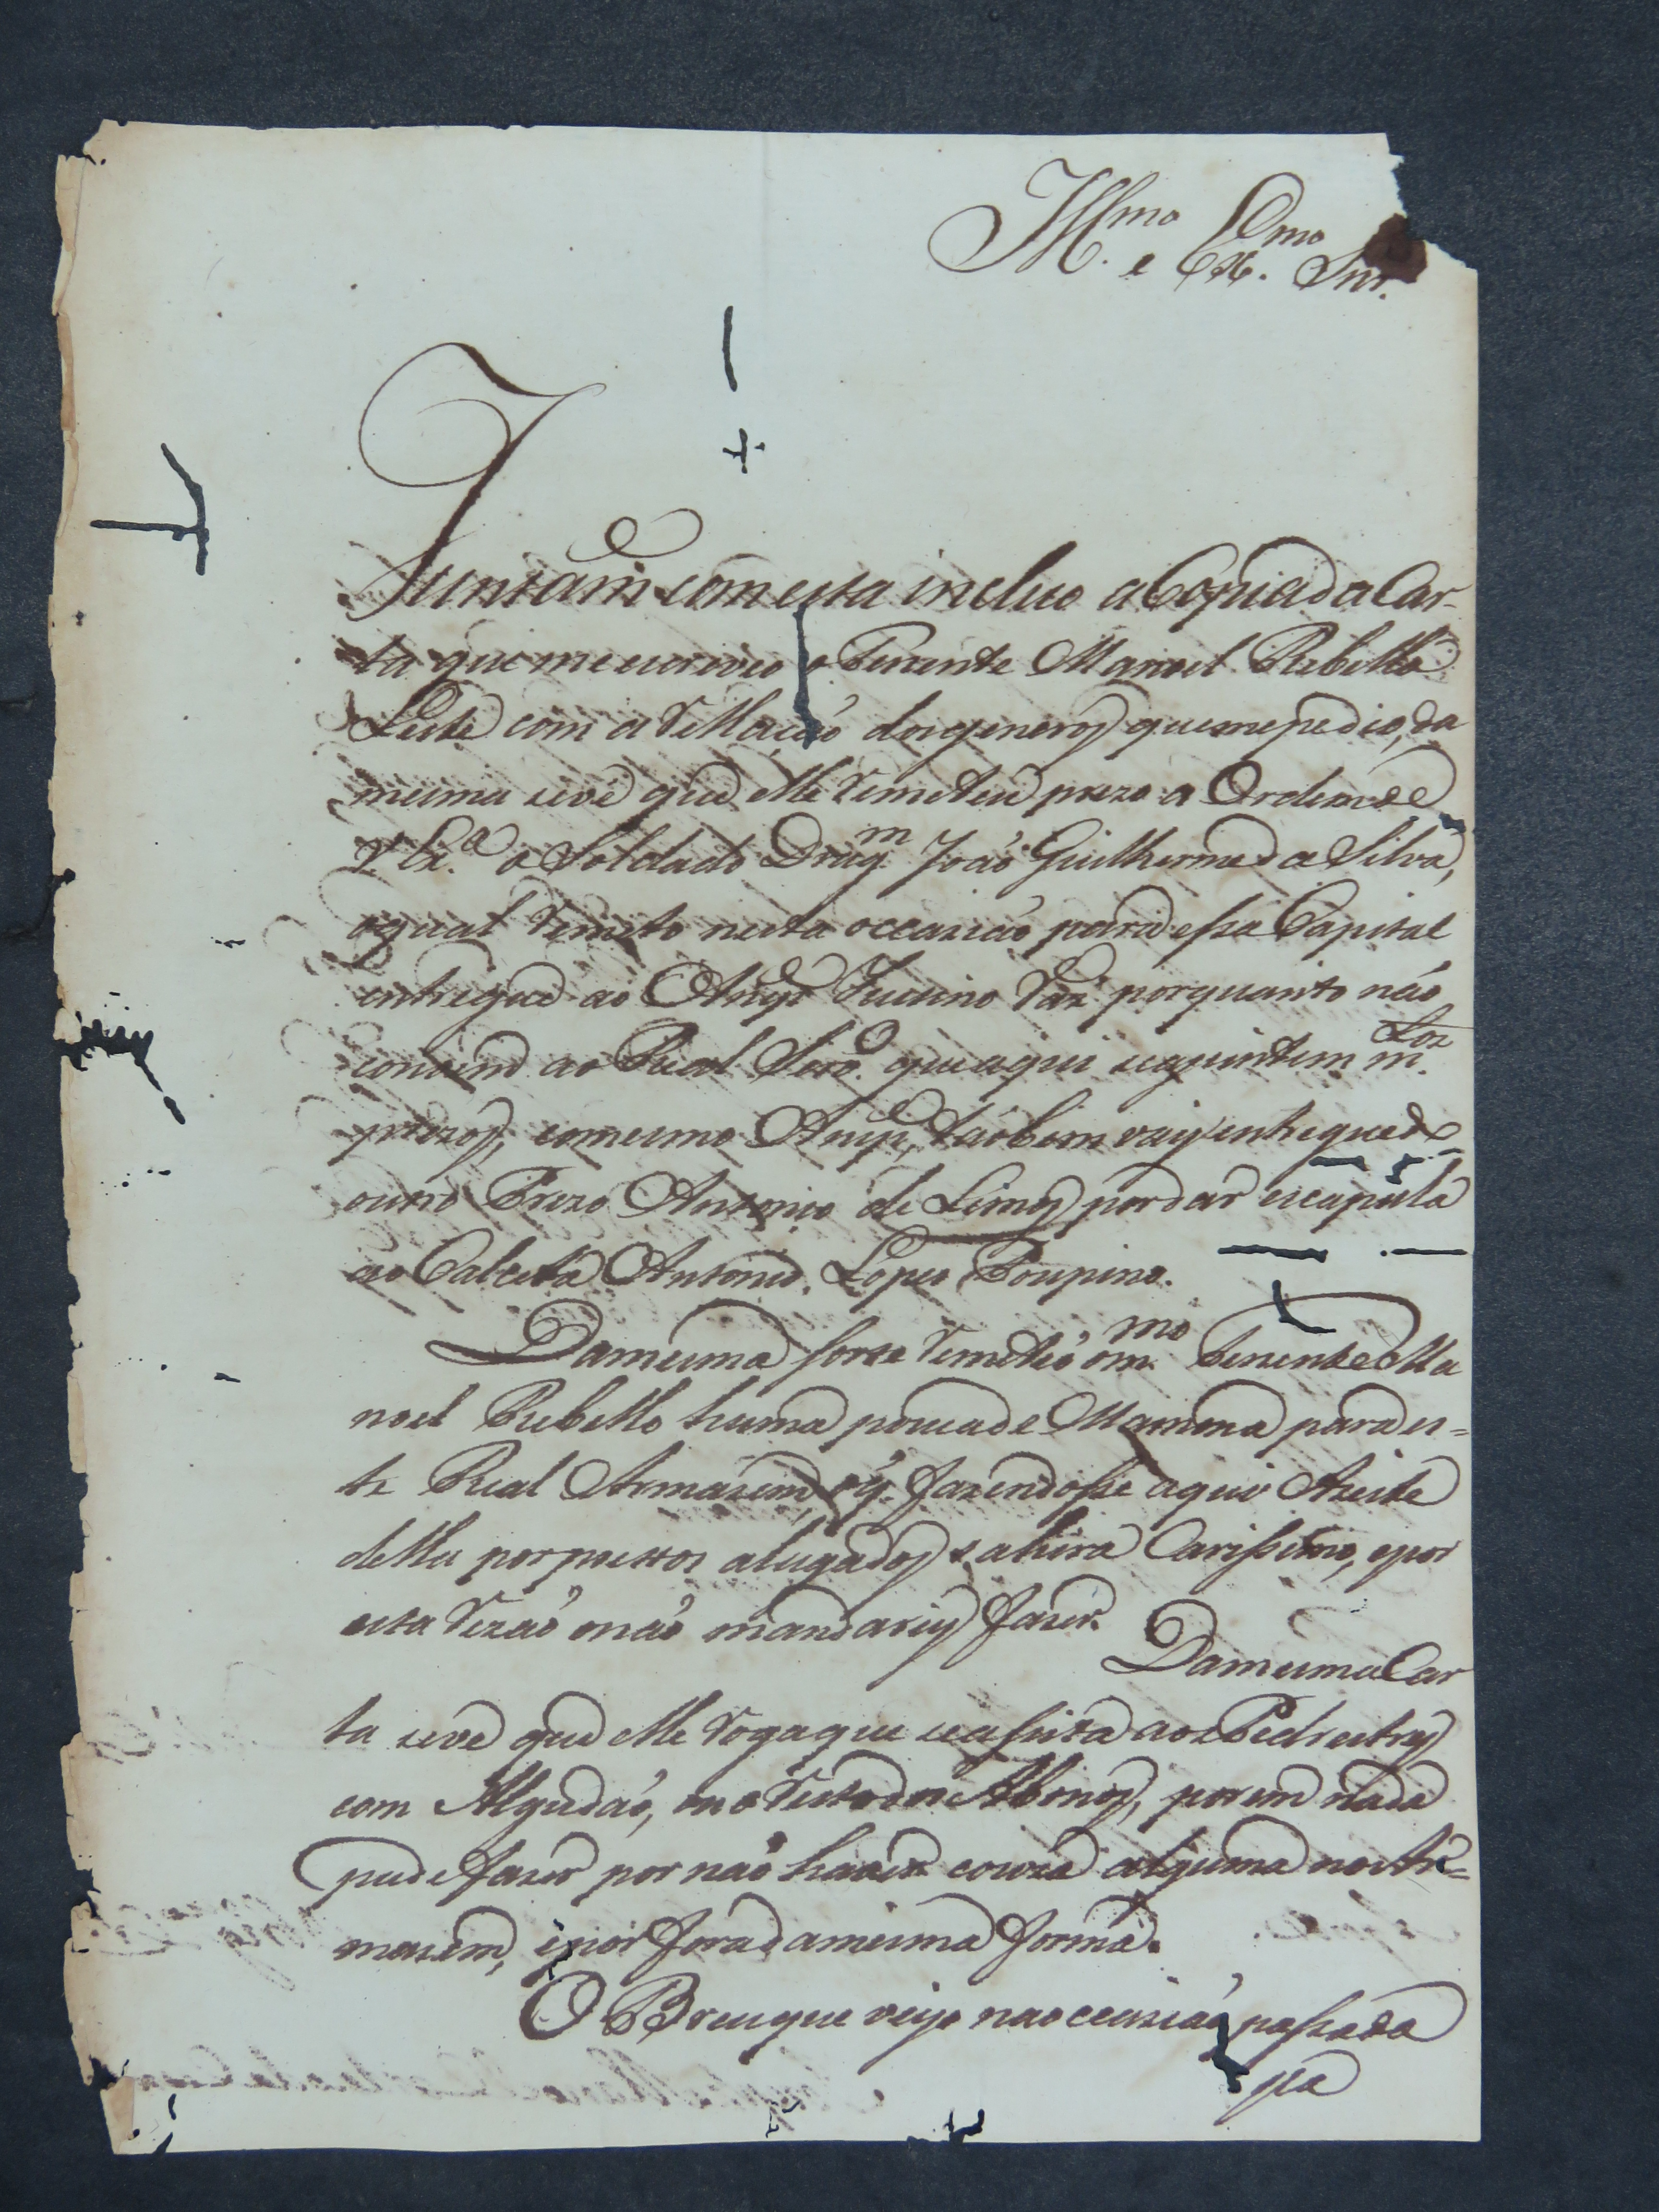 Ill.mo e Ex.mo Snr.
Juntam.e com esta incluo a Copia da Car-
ta que me escreveo o Tenente Manoel Rebello
Leite com a Rellação dos generos que me pedio, da
mesma se vê que elle remeteu prezo a Ordem de
V. Ex.a o Soldado Drag.m João Guilherme da Silva,
o qual remeto nesta occazião para essa Capital
entregue ao Anspe. Vaz porquanto não
convem ao Real Serv.o que aqui m.
prezos, o mesmo Anspe. taobem vay entregue de
outro Prezo Antonio de Lemos por dar escapula
ao Calceta Antonio Lopes Poupino.
Da mesma sorte remeteo o m.mo Tenente Ma
noel Rebello huma pouca de Mamona para es-
te Real Armazem, e q. fazendosse aquiv Azeite
della por pretos alugados sahira Carissimo, e por
esta rezão o não mandarey fazer.
Da mesma Car
ta se ve que elle roga que se assista aos Pedestres
com Algudão, no resto dos Abonos, porem nada
pude fazer por não haver couza alguma no Ar-
mazem, e por fora da mesma forma.
O Breu que veyo na occazião passada
pa